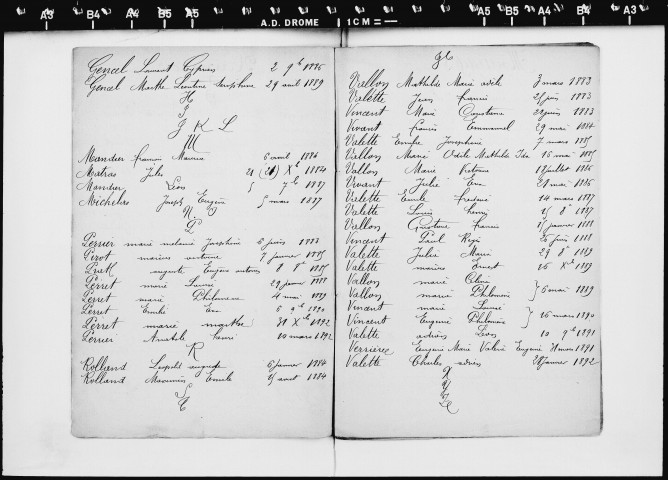 A3 B4 A4 B5 A5 A.D. DROME 1CM A5 B5 A4 B4 A3
Gencel Laurent Cyprien 2 9b 1886
Gencel Marthe Léontine Séraphine 29 avril 1889
H
I
J K L
M
Mandier francis Maurice 6 avril 1886
Matras Jules 21 (21) Xb 1884
Mandier Léon 5 7b 1887
Michelas Joseph Eugène 5 mars 1887
N O
P
Perrier marie mélanie Joséphine 6 juin 1883
Pirot marius antoine 7 janvier 1885
auguste Eugène antoine 8 8b 1885
Perret marie Louise 29 janvier 1888
Perret marie Philomène 4 mai 1889
Perret Emilie Eva 6 9b 1890
Perret marie marthe 31 Xb 1892
Perrier Anatole 10 mars 1892
R
Rolland Léopold auguste 6 janvier 1884
Rolland Maximin Emile 15 avril 1884
S
T
Vallon Mathilde Marie adèle 3 mars 1883
Valette Jean francis 25 juin 1883
Vincent Marie Constance 22 juin 1883
Vivant francis Emmanuel 29 mai 1884
Valette Emilie Joséphine 7 mars 1885
Vallon Marie Odile Mathilde Ida 16 mai 1885
Vallon Marie Victorine 18 juillet 1886
Vivant Julie Eva 21 mai 1886
Valette Emile 14 mars 1887
Valette Louis henry 15 8b 1887
Vallon Gustave francis 15 janvier 1888
Vincent Paul Régis 26 juin 1888
Valette Julie Marie 29 8b 1889
Valette marius Ernest 26 Xb 1889
Vallon marie Olive
Vallon marie Philomène } 6 mai 1889
Vincent marie Louise
Vincent Eugénie Philomène } 16 mars 1890
Valette adrien Léon 10 9b 1891
Verrière Eugénie Marie Valérie Eugénie 31 mars 1891
Valette Charles adrien 28 janvier 1892
X
Y
Z